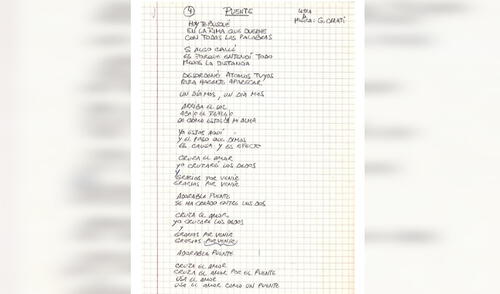 4
PUENTE
LETRA
&
MUSICA: G. CERATI
HOY TE BUSQUÉ
EN LA RIMA QUE DUERME
CON TODAS LAS PALABRAS
SI ALGO CALLÉ
ES PORQUE ENTENDÍ TODO
MENOS LA DISTANCIA
DESORDENÉ ATOMOS TUYOS
PARA HACERTE APARECER
UN DÍA MAS, UN DÍA MAS
ARRIBA EL SOL
ABAJO EL REFLEJO
DE COMO ESTALLA MI ALMA
YA ESTAS AQUÍ
Y EL PASO QUE DIMOS
ES CAUSA Y ES EFECTO
CRUZA EL AMOR
YO CRUZARÉ LOS DEDOS
Y
GRACIAS POR VENIR
GRACIAS POR VENIR
ADORABLE PUENTE
SE HA CREADO ENTRE LOS DOS
CRUZA EL AMOR
YO CRUZARÉ LOS DEDOS
Y
GRACIAS POR VENIR
GRACIAS PORVENIR
ADORABLE PUENTE
CRUZA EL AMOR
CRUZA EL AMOR POR EL PUENTE
USA EL AMOR
USA EL AMOR COMO UN PUENTE